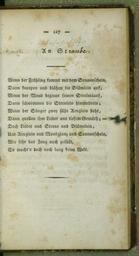 — 127 —
An Straube.
Wenn der Frühling kommt mit dem Sonnenschein,
Dann knospen und blühen die Blümlein auf;
Wenn der Mond beginnt seinen Strahlenlauf,
Dann schwimmen die Sternlein hintendrein;
Wenn der Sänger zwey süße Aeuglein sieht,
Dann quellen ihm Lieder aus tiefem Gemüth; —
Doch Lieder und Sterne und Blümelein,
Und Aeuglein und Mondglanz und Sonnenschein,
Wie sehr das Zeug auch gefällt,
So macht's doch noch lang keine Welt.